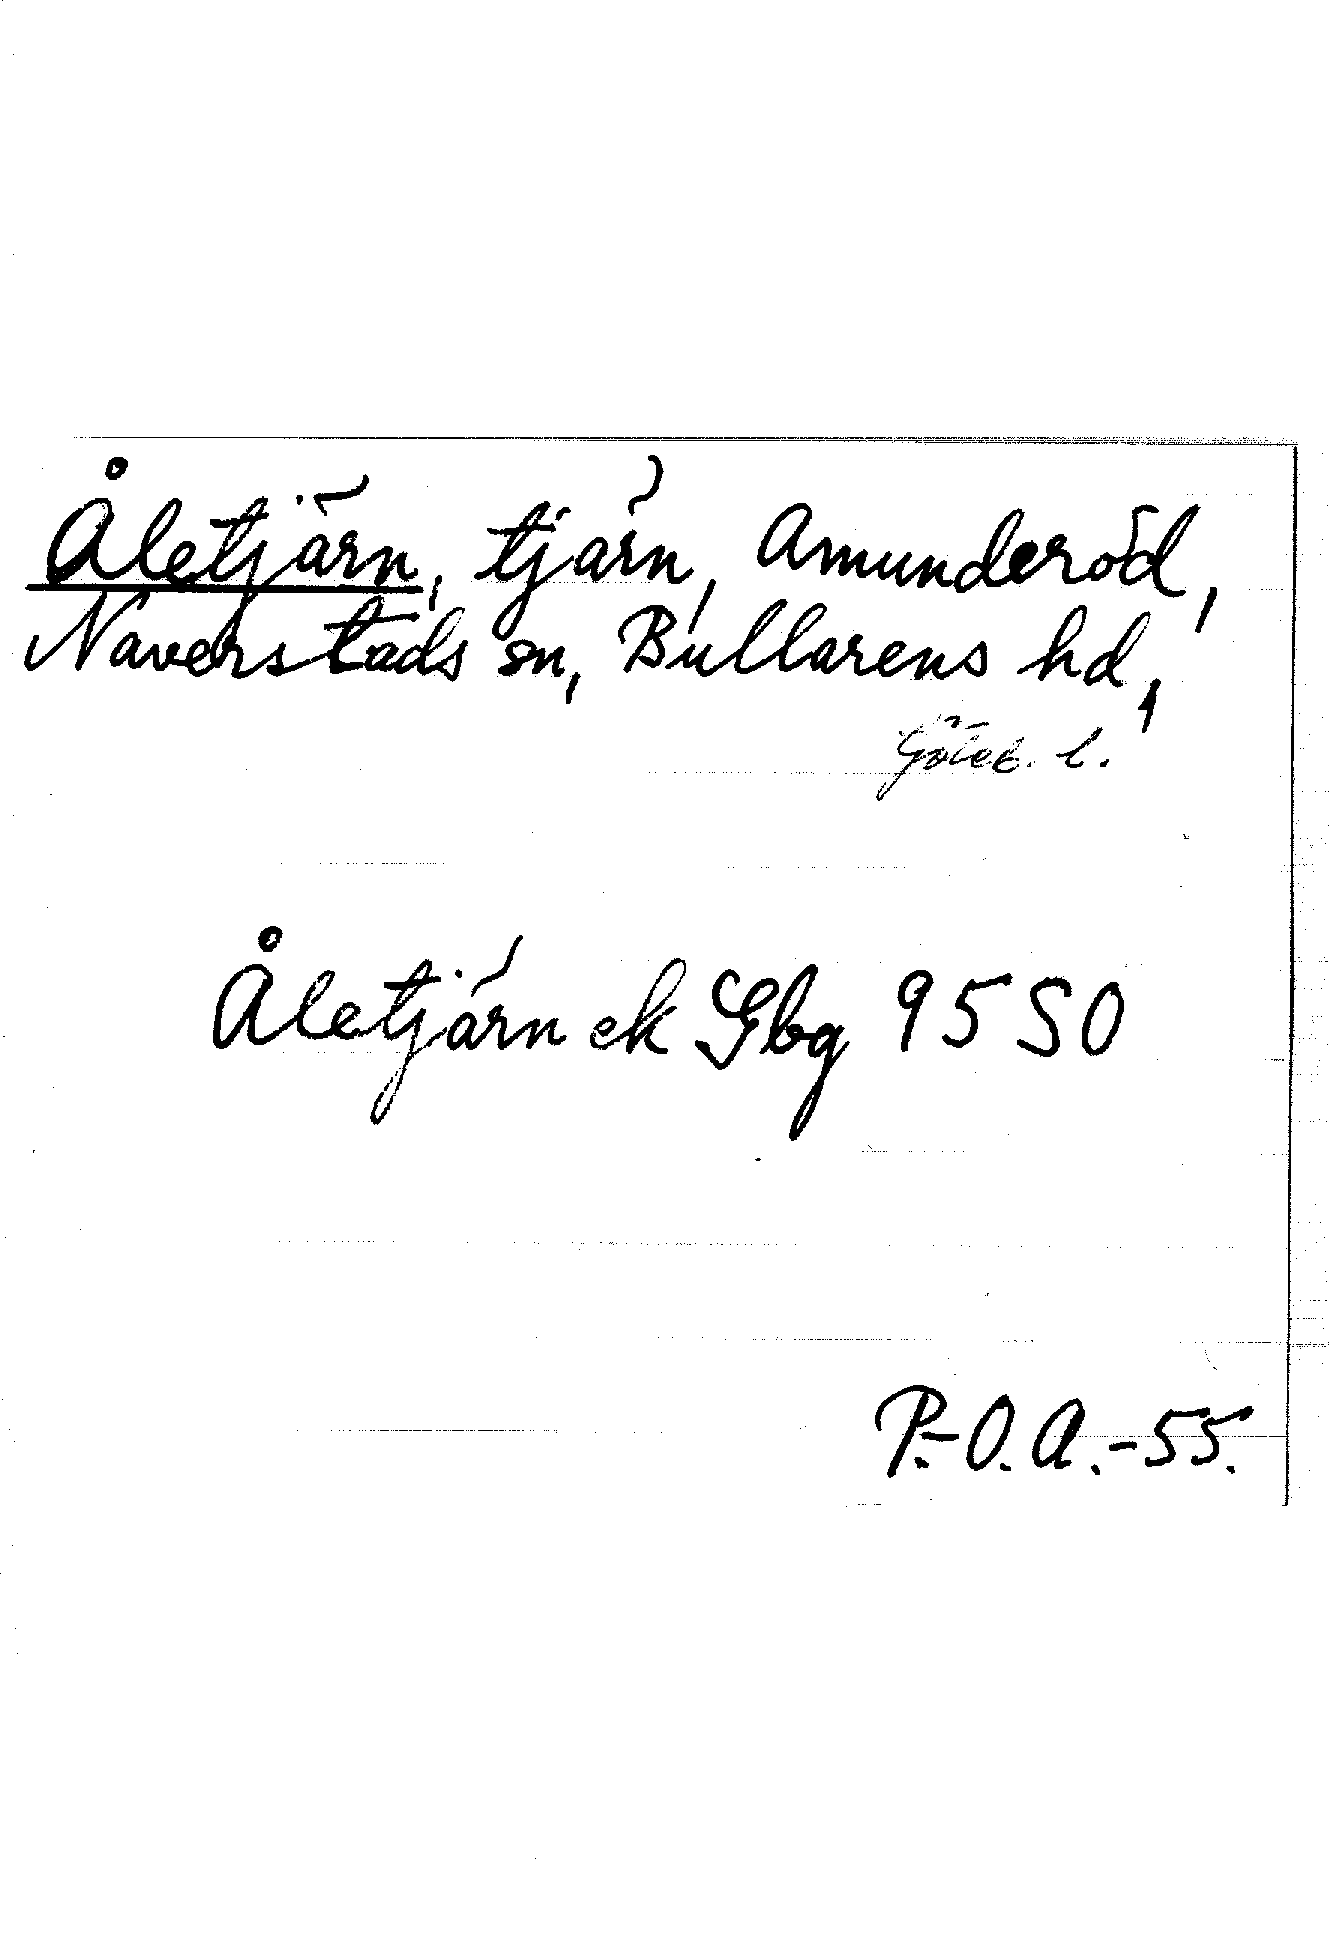 Åletjärn, tjärn, Amunderöd,
Naverstads sn, Bullarens hd,
Göteb. l.
Åletjärn ek Gbg 95 SO
P.-O. A.-55.